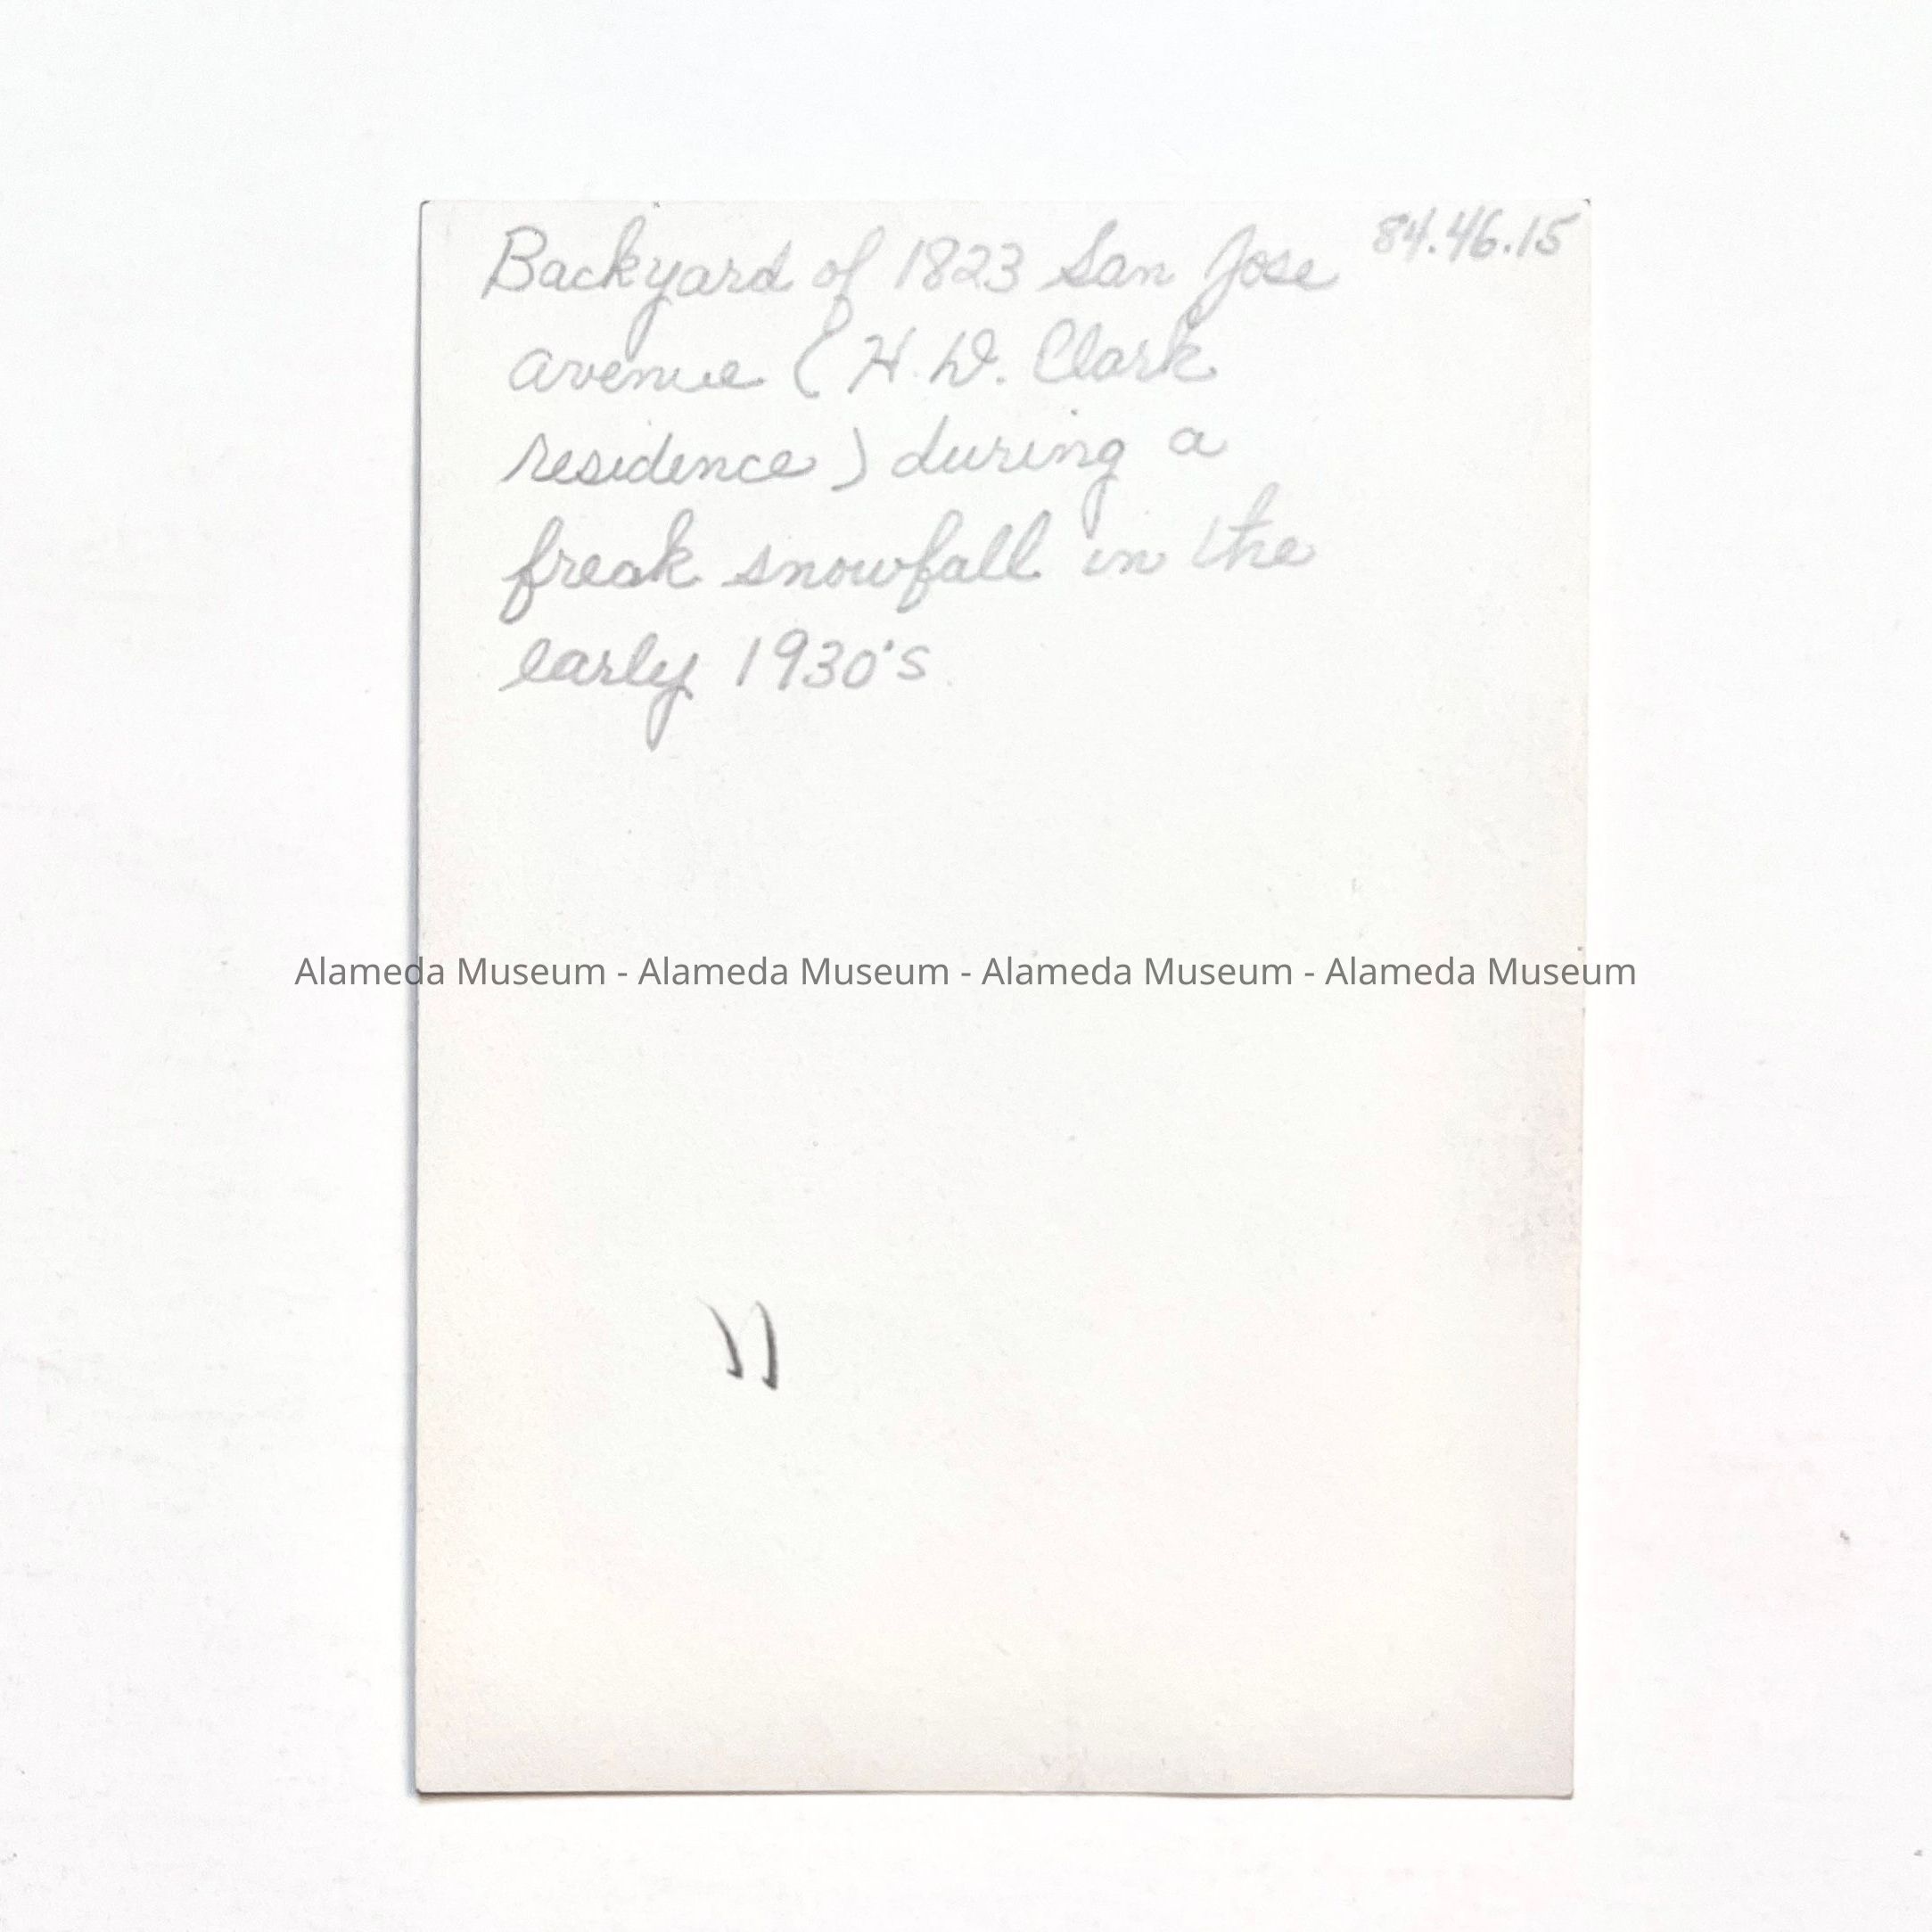 Backyard of 1823 San Jose 84.46.15
avenue (H.W. Clark
residence) during a
freak snowfall in the
early 1930's
Alameda Museum - Alameda Museum - Alameda Museum - Alameda Museum
11